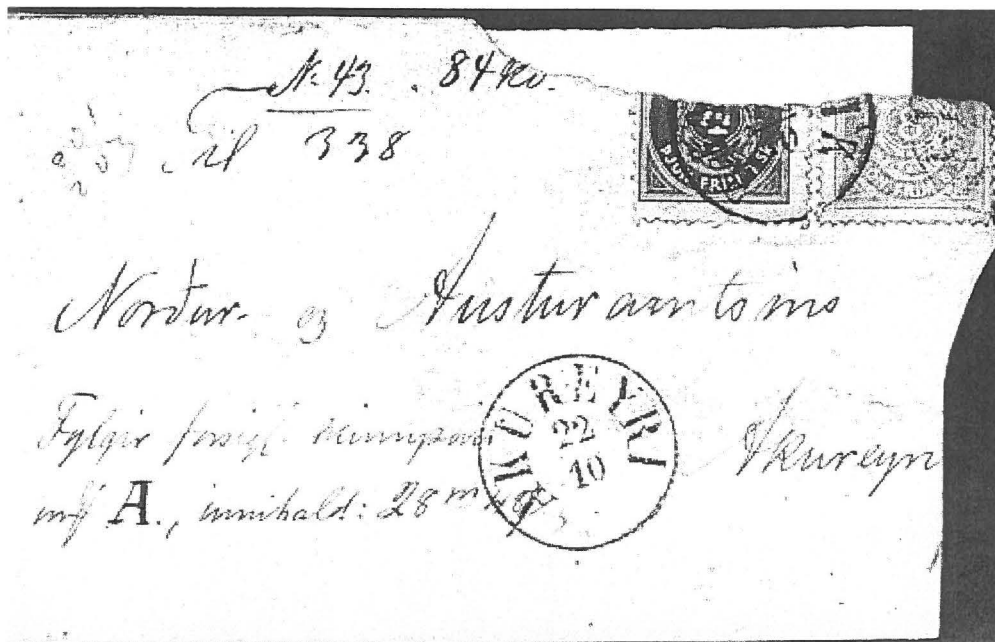 No 43. 84 Kv.
Til 338
ÞJÓN. FRIM. 
FRIM
Norður- og Austuramtsins
AKUREYRI
22
10
Akureyri
Fylgir forsigl.
A., innihald: 28